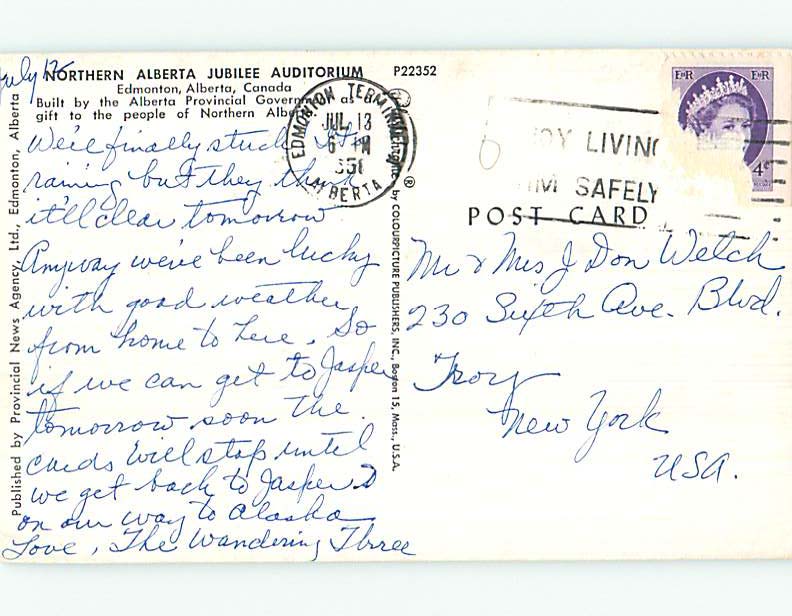 July 12
NORTHERN ALBERTA JUBILEE AUDITORIUM
Edmonton, Alberta, Canada
Built by the Alberta Provincial Government as
gift to the people of Northern Alberta
P22352
We're finally stuck. It's
raining but they think
it'll clear tomorrow
Anyway we've been lucky
with good weather
from home to here. So
if we can get to Jasper
tomorrow soon the
cards will stop until
we get back to Jasper
on our way to Alaska
Love, The Wandering Three
Published by Provincial News Agency, Ltd., Edmonton, Alberta
by COLOURPICTURE PUBLISHERS, INC., Boston 15, Mass., U.S.A.
®
EDMONTON TERMINAL
JUL 13
6 PM
ALBERTA
OY LIVING
IM SAFELY
E R
E R
4¢
POST CARD
Mr & Mrs J Don Welch
230 Sixth Ave. Blvd.
Troy
New York
USA.